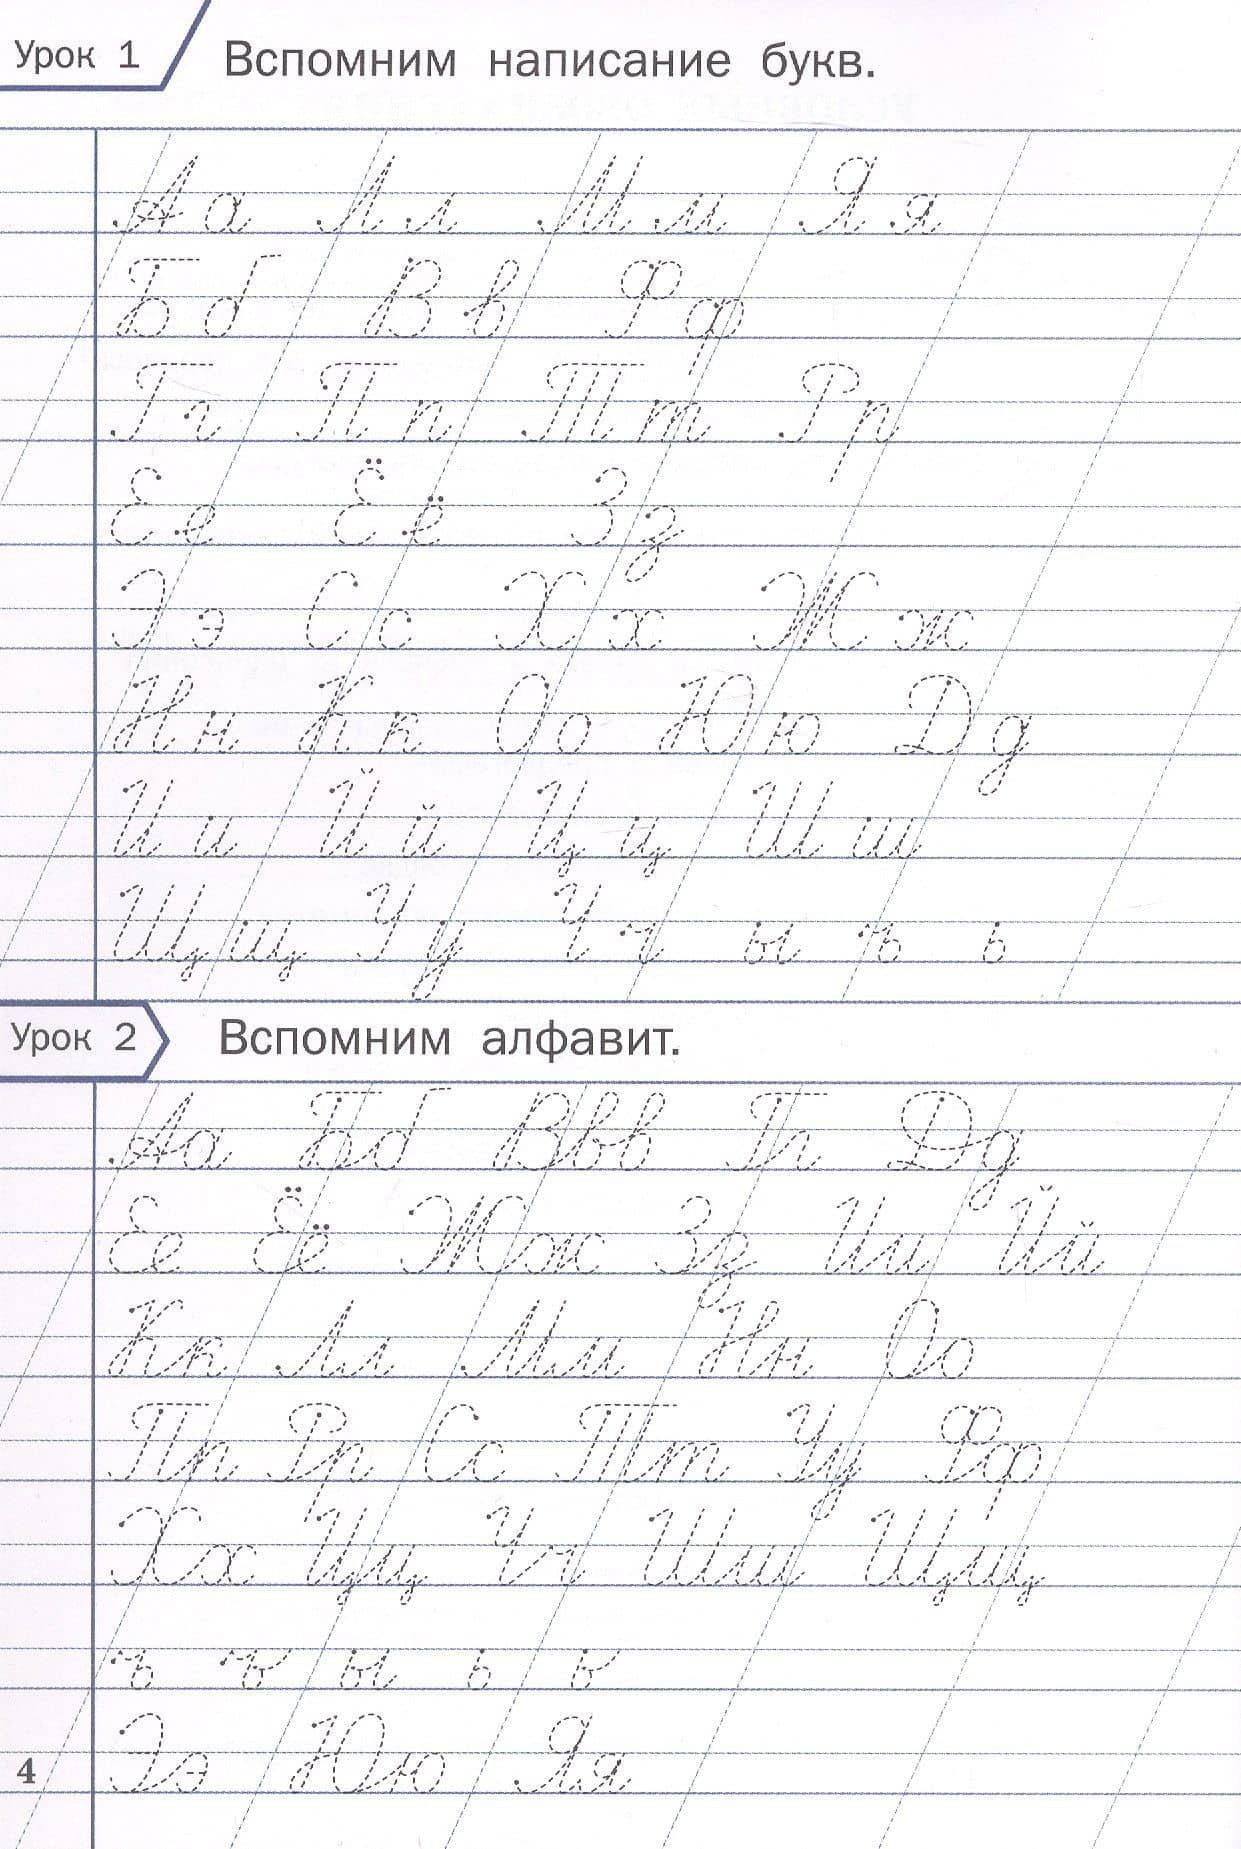 Урок 1
Вспомним написание букв.
А а Л л М м Я я
Б б В в Ф ф
Г г П п Т т Р р
Е е Ё ё З з
Э э С с Х х Ж ж
Н н К к О о Ю ю Д д
И и Й й Ц ц Ш ш
Щ щ У у Ч ч ы ъ ь
Урок 2
Вспомним алфавит.
Аа Бб Ввв Гг Дд
Ее Ёё Жж Зз Ии Йй
Кк Лл Мм Нн Оо
Пп Рр Сс Тт Уу Фф
Хх Цц Чч Шш Щщ
ъ ъ ы ь ь
Ээ Юю Яя
4